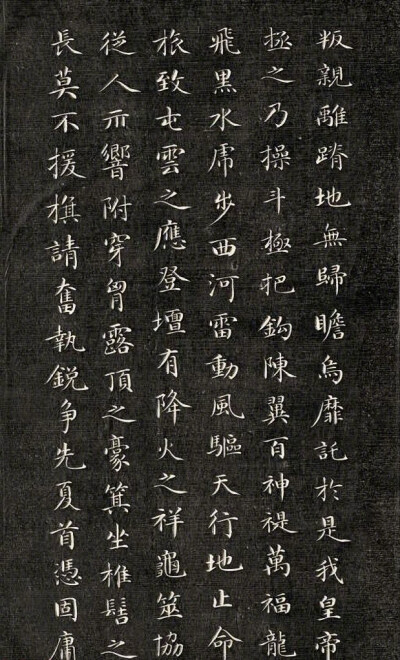 叛親離蹐地無歸瞻烏靡託於是我皇帝
拯之乃操斗極把鈎陳翼百神禔萬福龍
飛黑水虎步西河雷動風驅天行地止命
旅致屯雲之應登壇有降火之祥龜筮協
從人示響附穿胷露頂之豪箕坐椎髻之
長莫不援旗請奮執銳争先夏首憑固庸